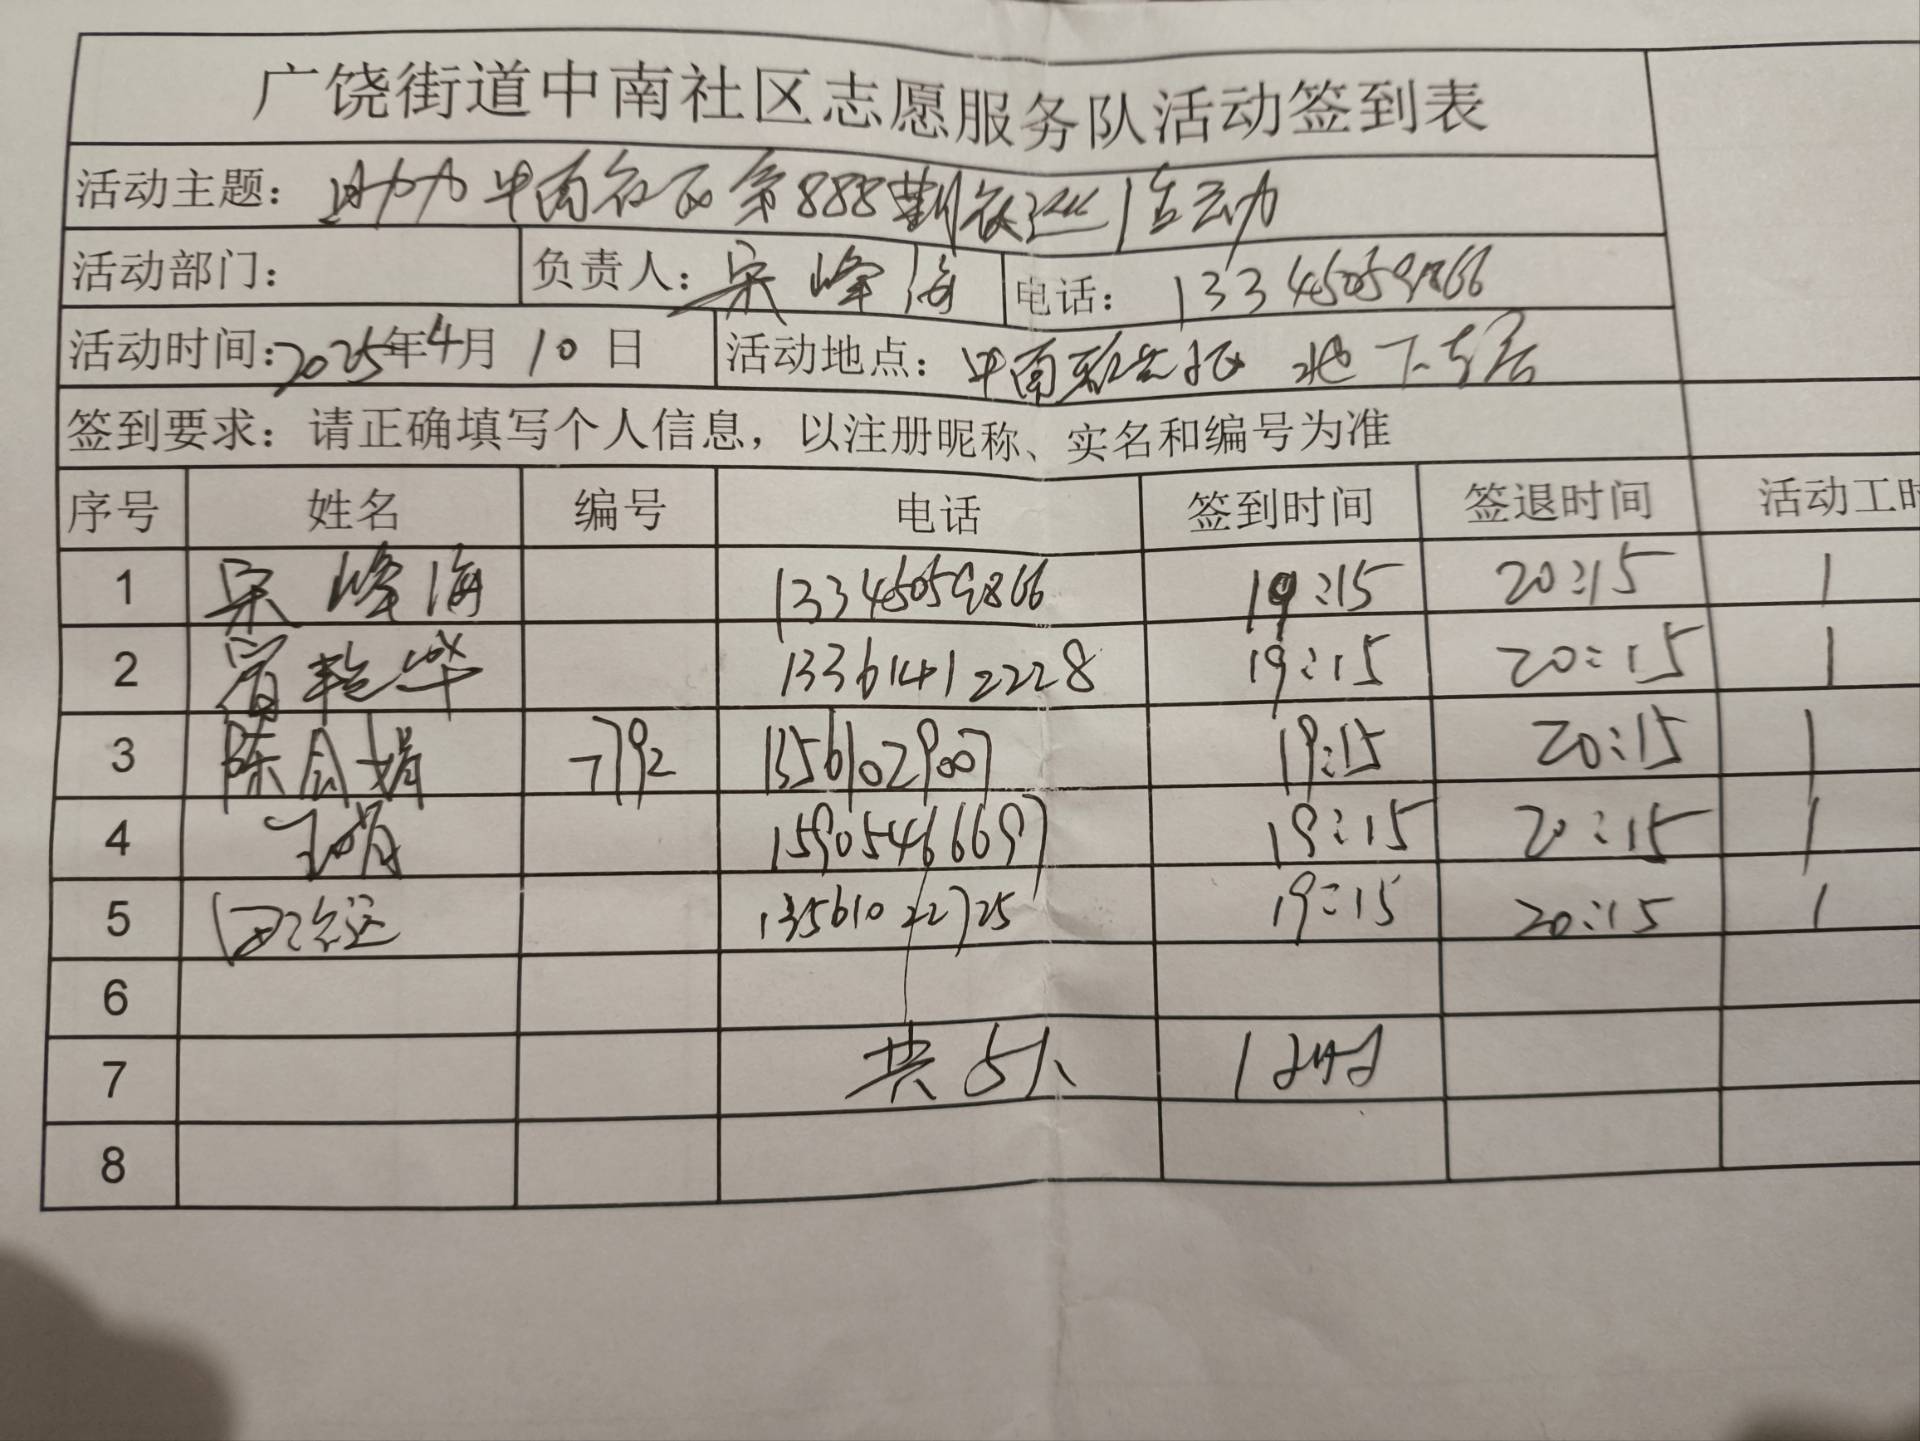 广饶街道中南社区志愿服务队活动签到表
活动主题： 助力中南社区第888期夜巡 活动
活动部门： 负责人： 宋峰海 电话： 13345059866
活动时间：2025年4月10日 活动地点： 中南 地下
签到要求：请正确填写个人信息，以注册昵称、实名和编号为准
序号 姓名 编号 电话 签到时间 签退时间 活动工时
1 宋峰海 13345059866 19:15 20:15 1
2 13361412228 19:15 20:15 1
3 陈会娟 7792 13561029007 19:15 20:15 1
4 15905466697 19:15 20:15 1
5 13561022725 19:15 20:15 1
6
7 共5人 1小时
8